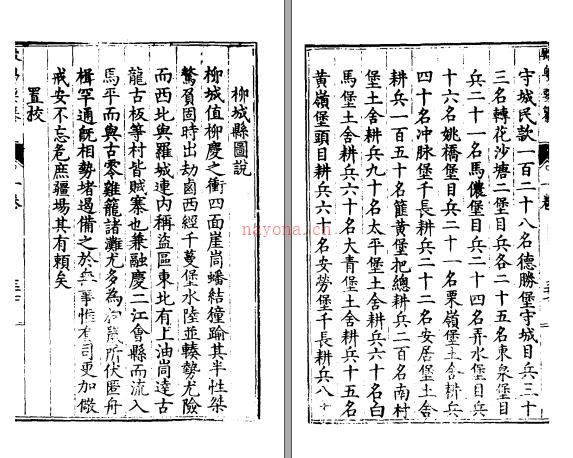 守城民欵一百二十八名德勝堡守城目兵三十
三名轉花沙二堡目兵各二十五名東泉堡目
兵二十一名馬儂堡目兵二十四名弄水堡目兵
十六名姚橋堡目兵二十一名栗嶺堡土舍耕兵
四十名冲脉堡千長耕兵二十二名安居堡土舍
耕兵一百五十名黃堡把總耕兵二百名南村
堡土舍耕兵九十名太平堡土舍耕兵六十名白
馬堡土舍耕兵六十名大青堡土舍耕兵十五名
黃嶺堡頭目耕兵六十名安勞堡千長耕兵八十
柳城縣圖說
柳城值柳慶之衝四面崖峝蟠結獞踰其半性桀
驁負固時出劫鹵西經千蔓堡水陸並輳勢尤險
而西北與羅城連内稱盜區東北有上油峝達古
龍古板等村皆賊寨也兼融慶二江會縣而流入
馬平而與古零雞籠諸灘尤多為賊所伏匿舟
楫罕通旣相勢堵遏備之於兵事惟有司更加儆
戒安不忘危庶疆場其有賴矣
置校
nayona.cn